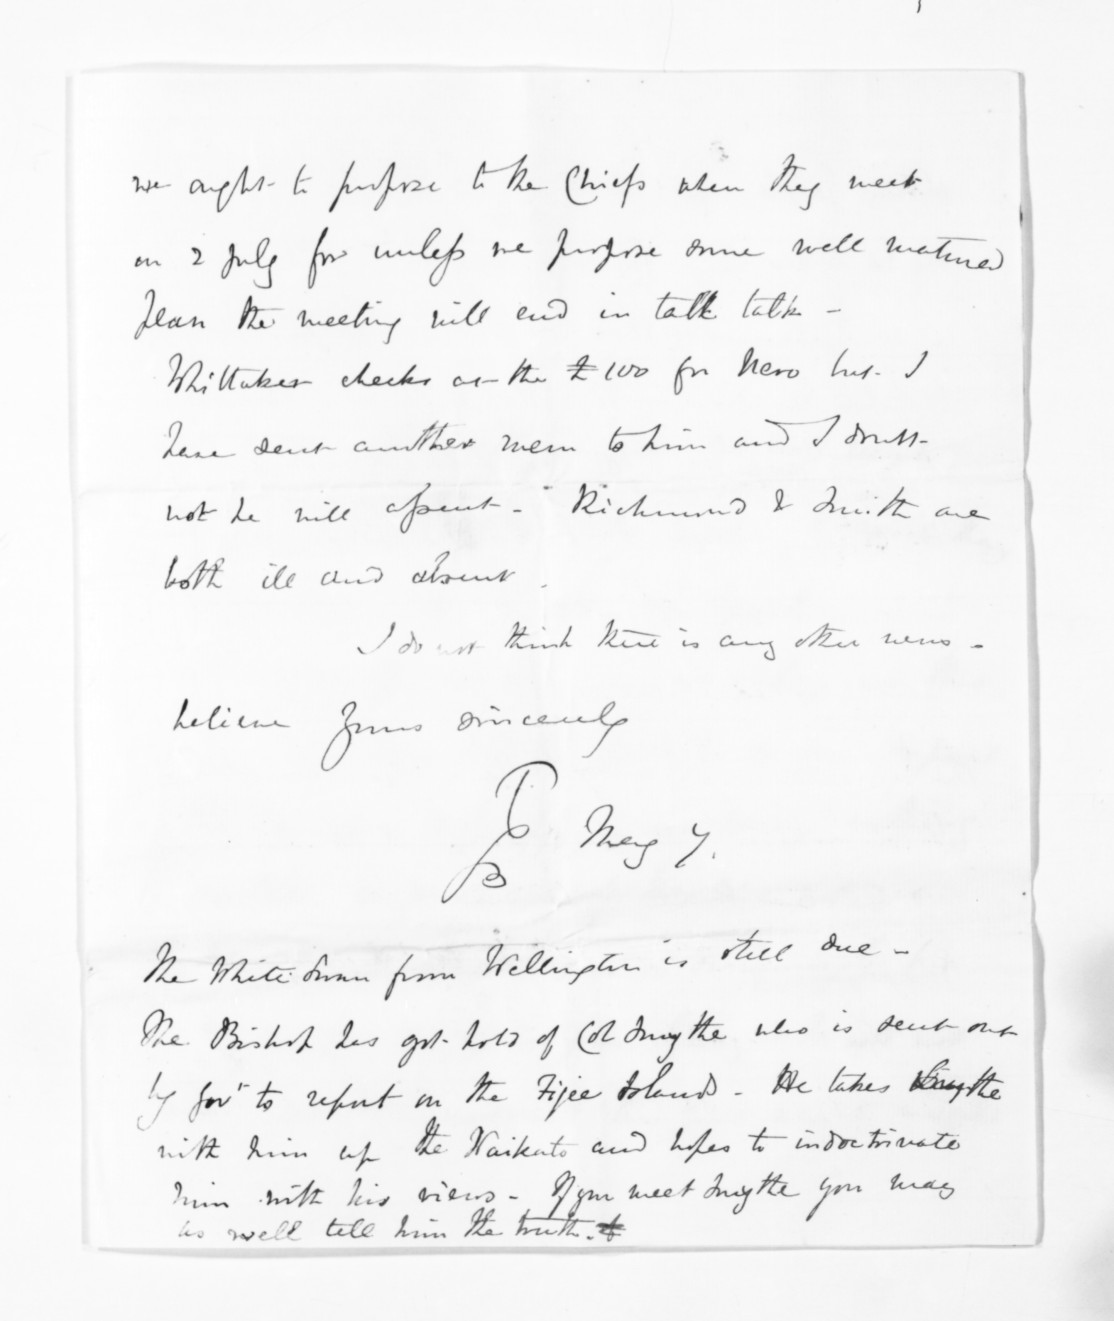 we ought to propose to the Chiefs when they meet
on 2 July for unless we propose some well matured
plan the meeting will end in talk talk -
Whittaker checks at the £100 for Nero but I
have sent another mem to him and I doubt
not he will assent - Richmond & Smith are
both ill and absent.
I do not think there is any other news -
believe Yours sincerely
TGB May 7.
The White Swan from Wellington is still due -
The Bishop has got hold of Col Smythe who is sent out
by Govt to report on the Fijee Islands - He takes Smythe
with him up the Waikato and hopes to indoctrinate
him with his views - If you meet Smythe you may
as well tell him the truth.